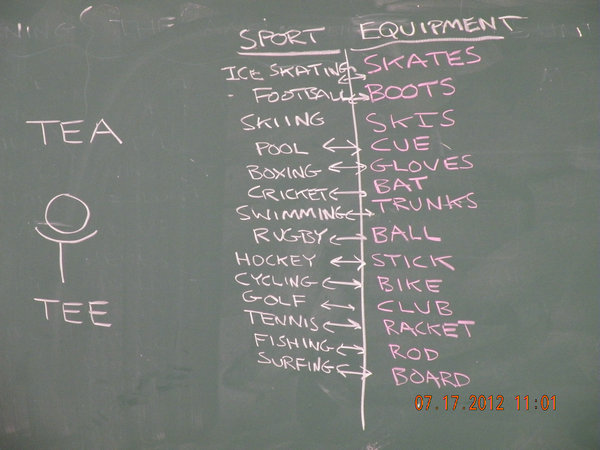 SPORT EQUIPMENT
ICE SKATING SKATES
FOOTBALL BOOTS
SKIING SKIS
POOL CUE
BOXING GLOVES
CRICKET BAT
SWIMMING TRUNKS
RUGBY BALL
HOCKEY STICK
CYCLING BIKE
GOLF CLUB
TENNIS RACKET
FISHING ROD
SURFING BOARD
TEA
TEE
07.17.2012 11:01